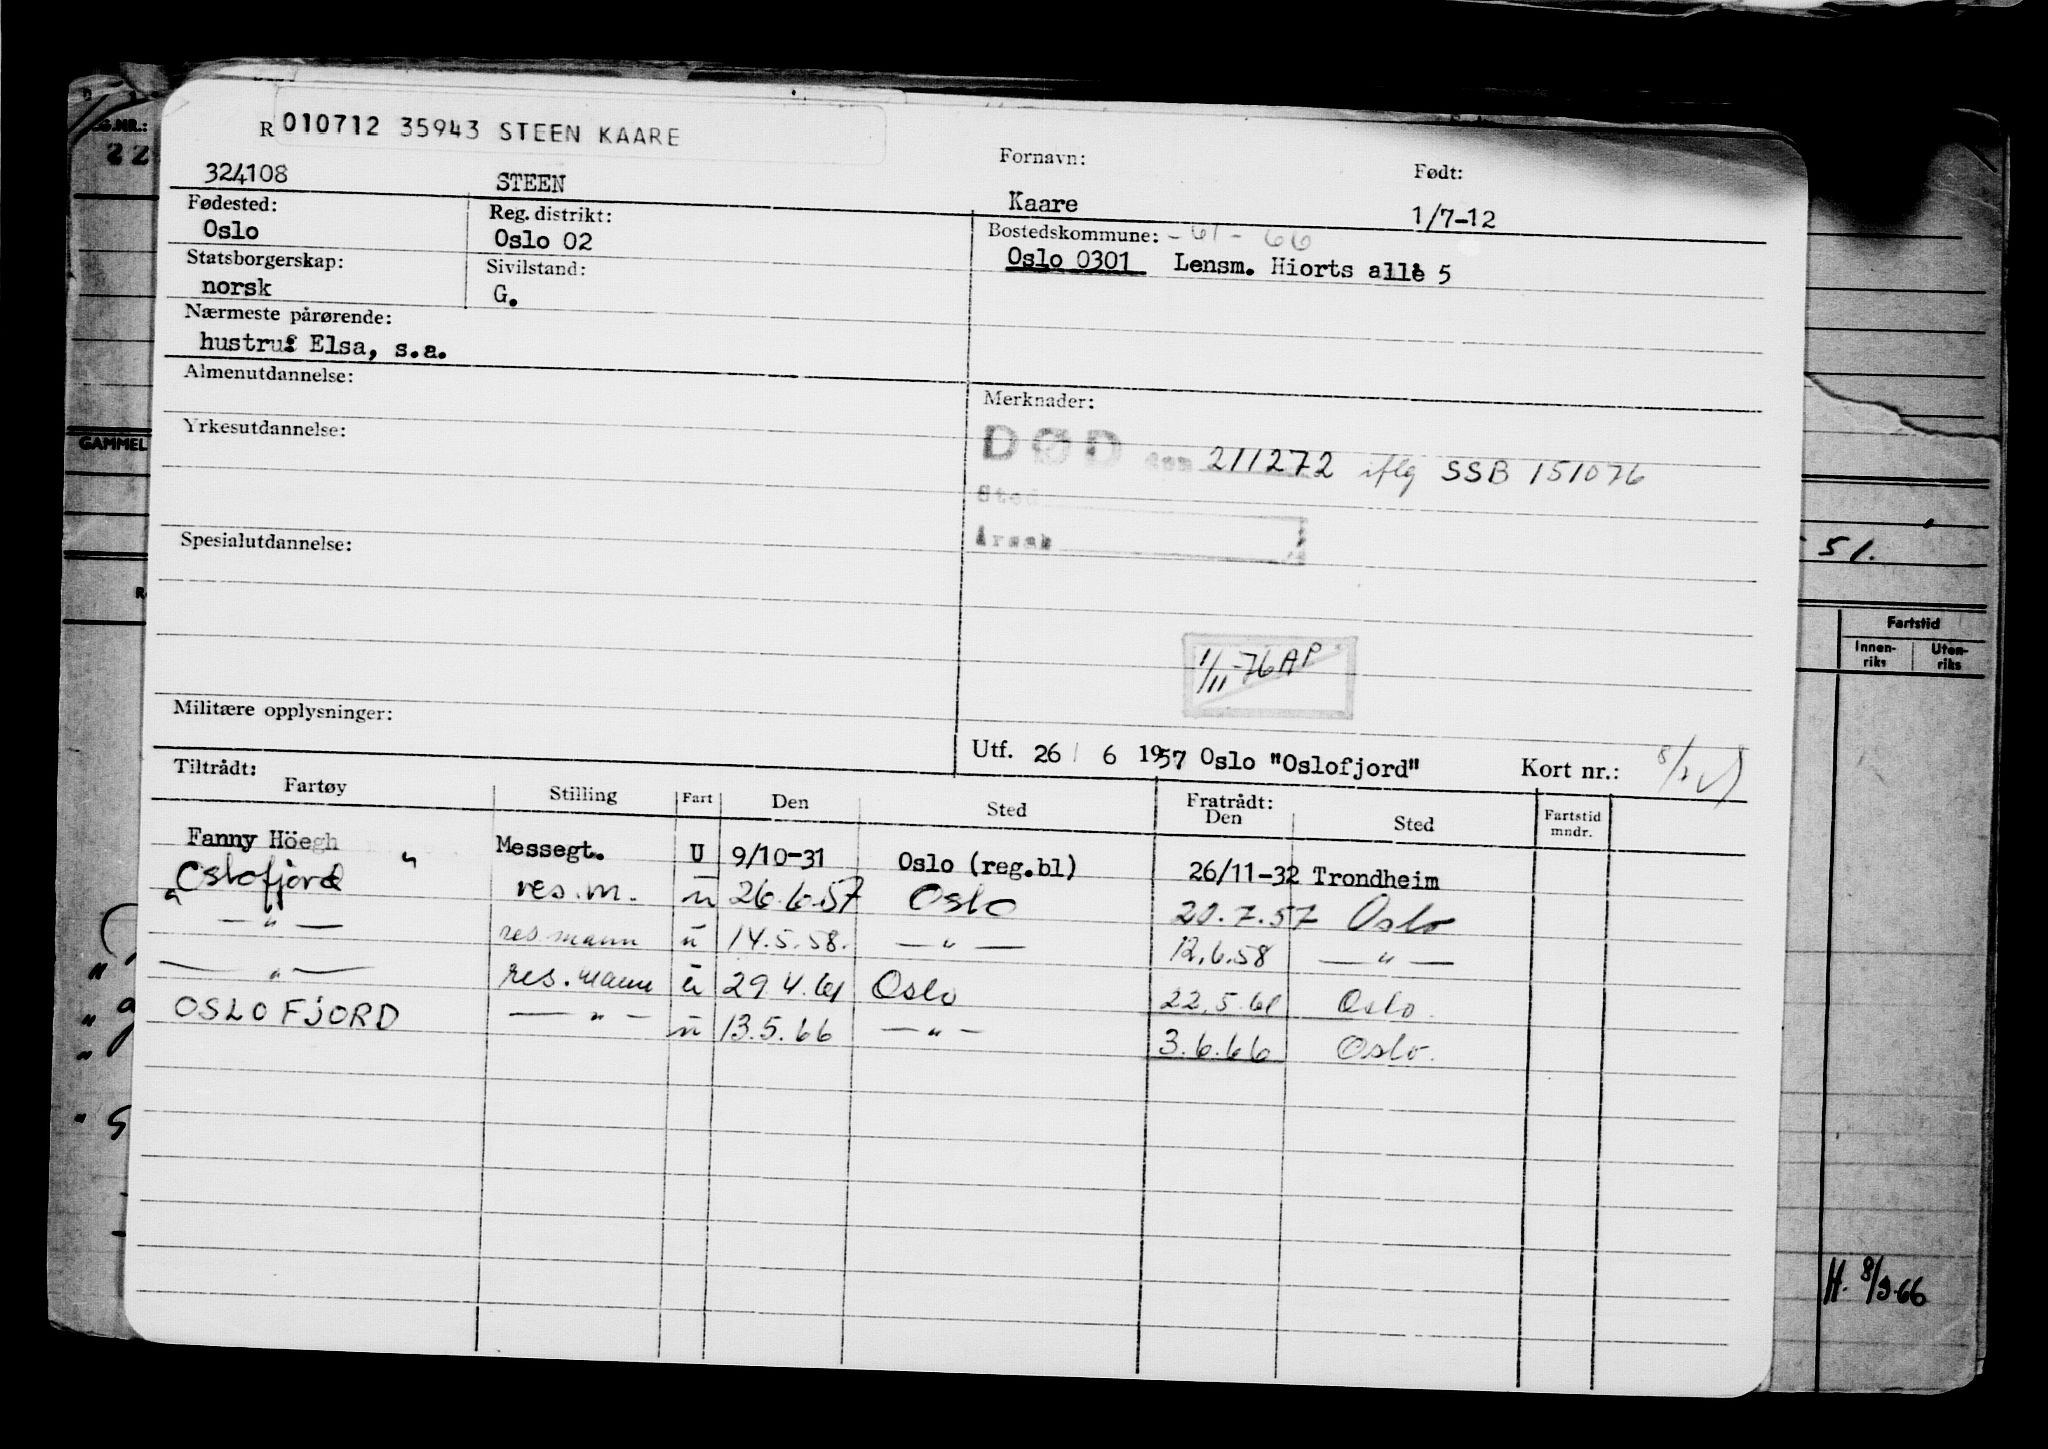 R 010712 35943 STEEN KAARE
Fornavn: Født:
324108 STEEN Kaare 1/7-12
Fødested: Reg. distrikt: Bostedskommune: -61-66
Oslo Oslo 02 Oslo 0301 Lensm. Hiorts allé 5
Statsborgerskap: Sivilstand:
norsk G.
Nærmeste pårørende:
hustru: Elsa, s.a.
Almenutdannelse: Merknader:
Yrkesutdannelse: DØD den 211272 iflg SSB 151076
Sted
Årsak
Spesialutdannelse:
1/11-76 AP
Militære opplysninger:
Utf. 26/ 6 1957 Oslo "Oslofjord" Kort nr.:
Tiltrådt: Fratrådt:
Fartøy Stilling Fart Den Sted Den Sted Fartstid mndr.
Fanny Höegh Messegt. U 9/10-31 Oslo (reg.bl) 26/11-32 Trondheim
" Oslofjord " res.m. u 26.6.57 Oslo 20.7.57 Oslo
— " — res mann u 14.5.58. — " — 12.6.58 — " —
— " — res. mann u 29.4.61 Oslo 22.5.61 Oslo.
OSLOFJORD — " — u 13.5.66 — " — 3.6.66 Oslo.
REG.NR.:
22
GAMMEL
51.
Fartstid
Innen-riks Uten-riks
H. 8/9.66